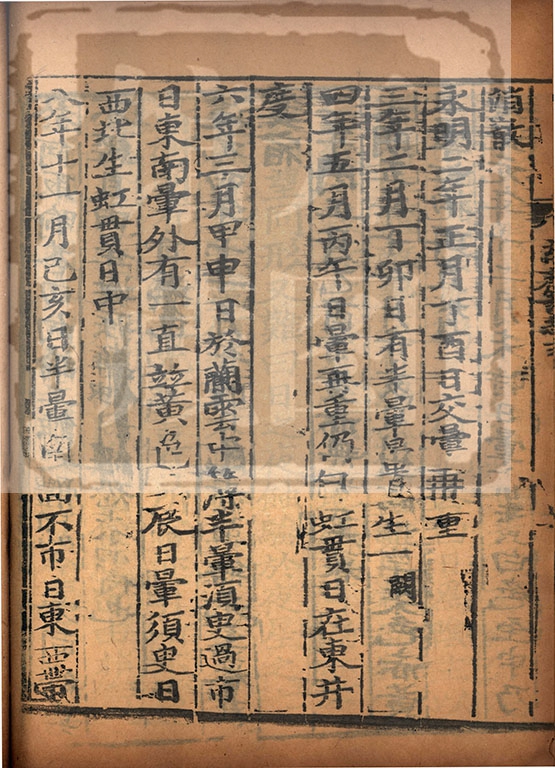 消散
永明二年正月丁酉日交暈再重
三年二月丁卯日有半暈 生一 闕
四年五月丙午日暈再重仍白虹貫日在東井
度
六年三月甲申日於蘭雲中 半暈須臾過市
日東南暈外有一直並黃色 辰日暈須臾日
西北生虹貫日中
八年十一月己亥日半暈南面不帀日東西帶暈